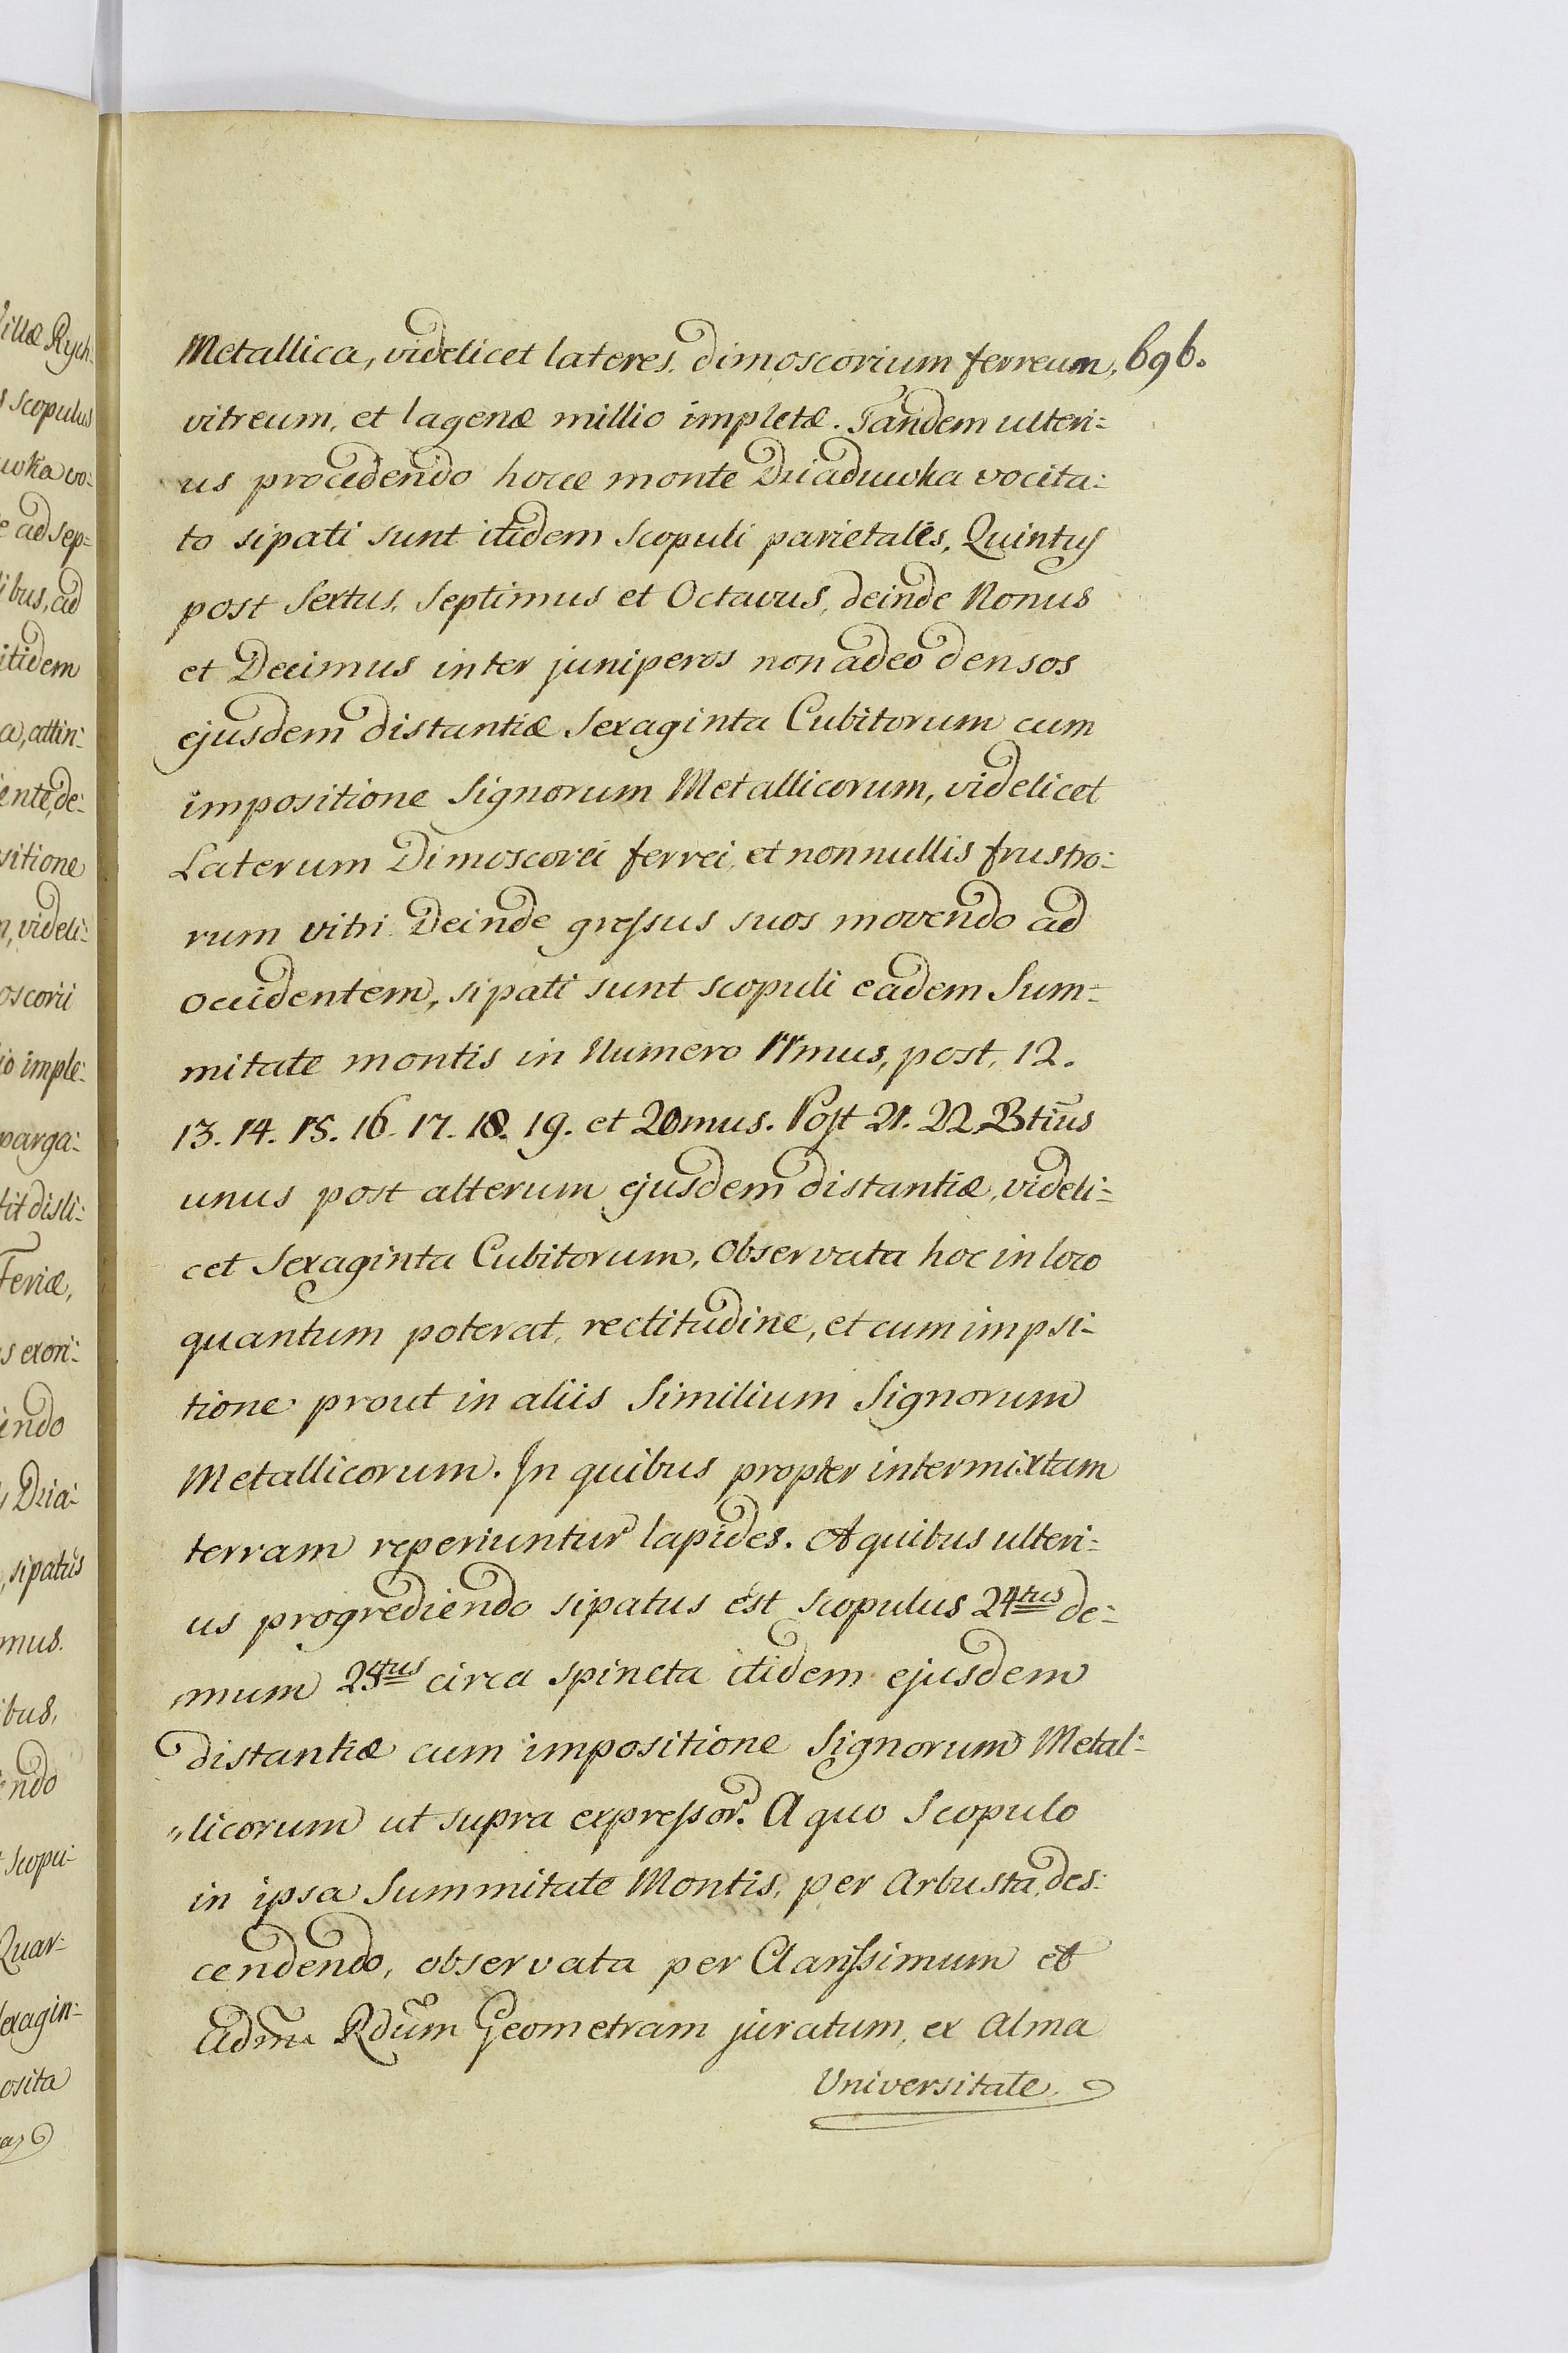 Metallica, videlicet lateres, dimoscorium ferreum, 696.
vitreum, et lagenæ millio impletæ. Tandem ulteri=
us procedendo hocce monte Dziaduwka vocita=
to sipati sunt itidem scopuli parietales, Quintus
post Sextus, Septimus et Octavus, deinde Nonus
et Decimus inter juniperos non adeo densos
ejusdem distantiæ Sexaginta Cubitorum cum
impositione Signorum Metallicorum, videlicet
Laterum Dimoscorii ferrei, et nonnullis frusto=
rum vitri. Deinde gressus suos movendo ad
occidentem, sipati sunt scopuli eadem Sum=
mitate montis in Numero 11mus, post, 12.
13. 14. 15. 16. 17. 18. 19. et 20mus. Post 21. 22. 23tius
unus post alterum ejusdem distantiæ, videli=
cet Sexaginta Cubitorum, Observata hoc in loco
quantum poterat, rectitudine, et cum impsi=
tione prout in aliis Similium Signorum
Metallicorum. In quibus propter intermixtam
terram reperiuntur lapides. A quibus ulteri=
us progrediendo sipatus est scopulus 24tus de=
mum 25tus circa spineta itidem ejusdem
distantiæ cum impositione Signorum Metal=
"licorum ut supra expressor. A quo Scopulo
in ipsa Summitate Montis, per Arbusta, des=
cendendo, observata per Clarissimum et
Adm Rdum Geometram juratum, ex Alma
Universitate
illæ Rych=
scopulus
uwka vo=
e ad sep=
ibus, ad
itidem
a, attin=
iente, de=
sitione
n, videli=
oscorii
io imple=
parga=
tit disli=
Feriæ,
s exori=
indo
Dzia=
, sipatus
mus.
ibus,
endo
scopu=
Quar=
exagin=
osita